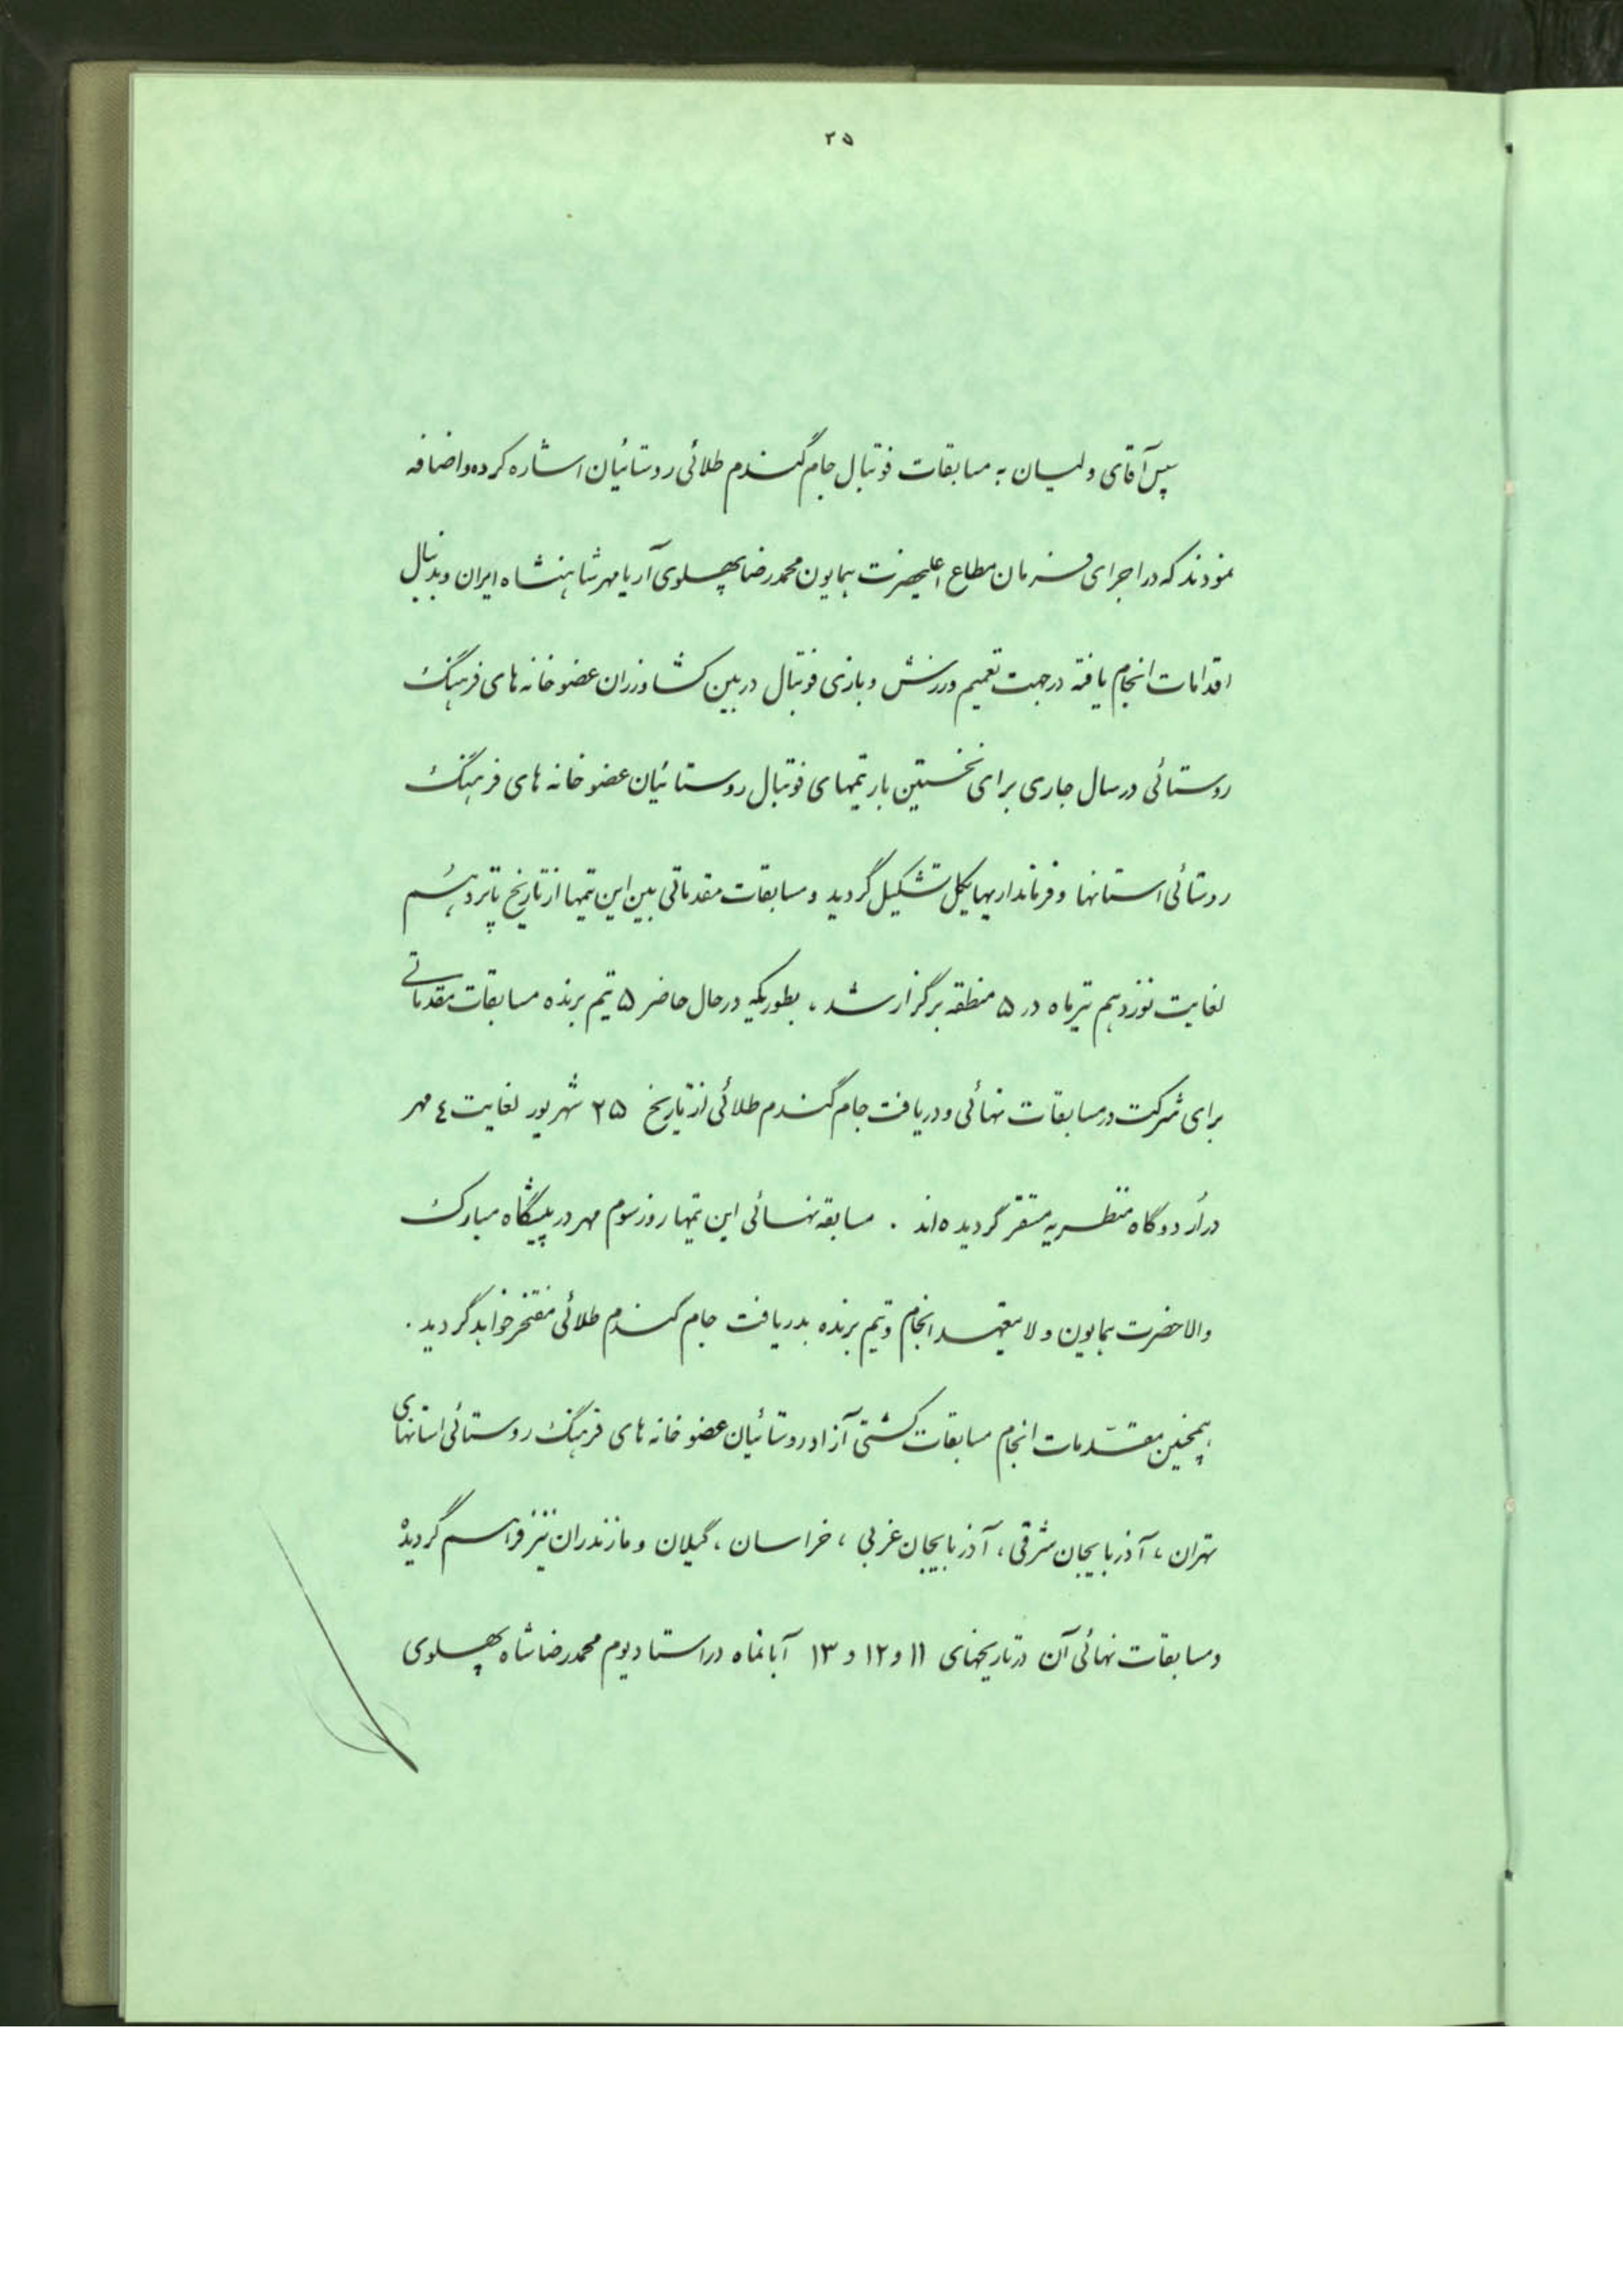 ۲۵
سپس آقای ولیان به مسابقات فوتبال جام گندم طلائی روستائیان اشاره کرده و اضافه
نمودند که در اجرای فرمان مطاع اعلیحضرت همایون محمدرضا پهلوی آریامهر شاهنشاه ایران و بدنبال
اقدامات انجام یافته در جهت تعمیم ورزش و بازی فوتبال در بین کشاورزان عضو خانه های فرهنگ
روستائی در سال جاری برای نخستین بار تیمهای فوتبال روستائیان عضو خانه های فرهنگ
روستائی استانها و فرمانداریهایکل تشکیل گردید و مسابقات مقدماتی بین این تیمها از تاریخ پانزدهم
لغایت نوزدهم تیرماه در ۵ منطقه برگزار شد ، بطوریکه در حال حاضر ۵ تیم برنده مسابقات مقدماتی
برای شرکت در مسابقات نهائی و دریافت جام گندم طلائی از تاریخ ۲۵ شهریور لغایت ٤ مهر
در اردوگاه منظریه مستقر گردیده‌اند . مسابقه نهائی این تیمها روز سوم مهر در پیشگاه مبارک
والاحضرت همایون ولایتعهد انجام و تیم برنده بدریافت جام گندم طلائی مفتخر خواهد گردید .
همچنین مقدّمات انجام مسابقات کشتی آزاد روستائیان عضو خانه های فرهنگ روستائی استانهای
تهران ، آذربایجان شرقی ، آذربایجان غربی ، خراسان ، گیلان و مازندران نیز فراهم گردیده
و مسابقات نهائی آن در تاریخهای ۱۱ و ۱۲ و ۱۳ آبانماه در استادیوم محمدرضا شاه پهلوی